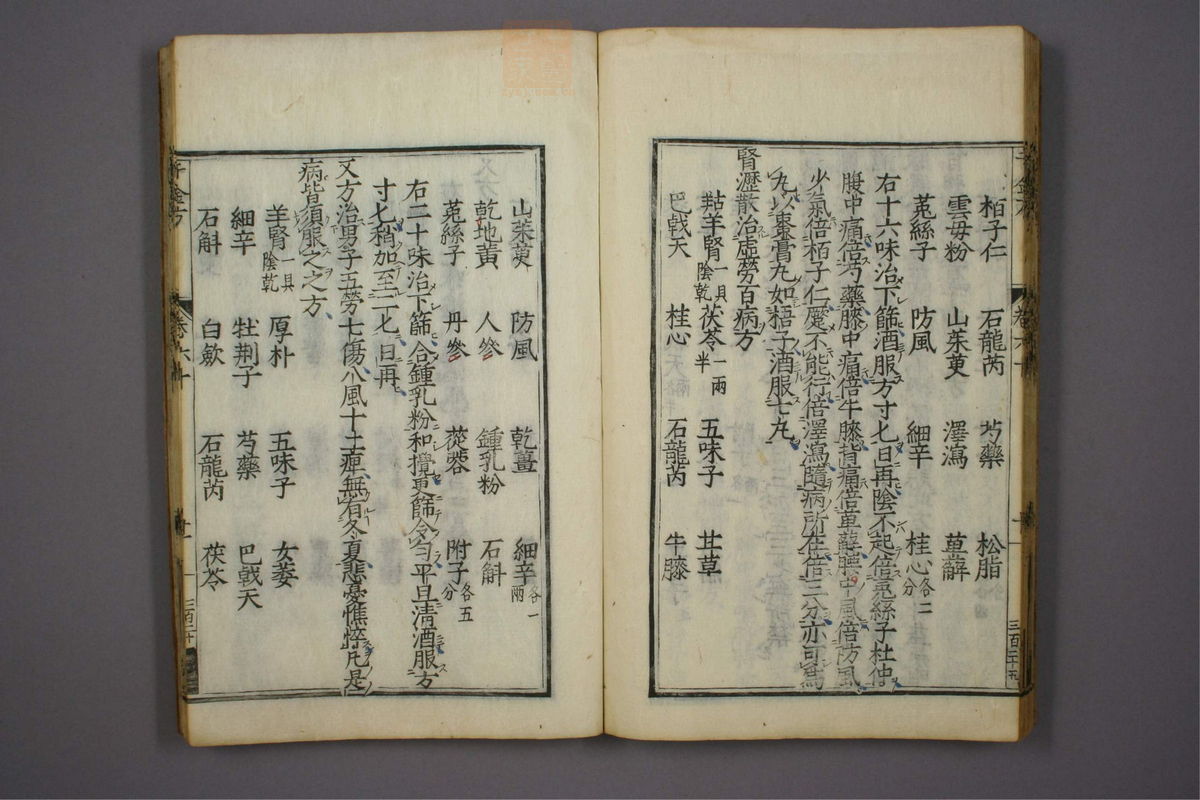 栢子仁　石龍芮　芍藥　松脂
雲母粉　山茱萸　澤瀉　萆薢
菟絲子　防風　細辛　桂心各二分
右十六味治下篩酒服方寸匕日再陰不起倍菟絲子杜仲
腹中痛倍芍藥膝中痛倍牛膝背痛倍萆薢腰中風倍防風
少氣倍栢子仁蹷不能行倍澤瀉隨病所在倍三分亦可為
丸以棗膏丸如梧子酒服七丸
腎瀝散治虛勞百病方
羖羊腎一具陰乾　茯苓一兩半　五味子　甘草
巴戟天　桂心　石龍芮　牛膝
山茱萸　防風　乾薑　細辛各一兩
乾地黃　人參　鍾乳粉　石斛
菟絲子　丹參　蓯蓉　附子各五分
右二十味治下篩合鍾乳粉和攪更篩令勻平旦清酒服方
寸匕稍加至二匕日再
又方治男子五勞七傷八風十二痺無有冬夏悲憂憔悴凡是
病皆須服之之方
羊腎一具陰乾　厚朴　五味子　女萎
細辛　牡荆子　芍藥　巴戟天
石斛　白歛　石龍芮　茯苓